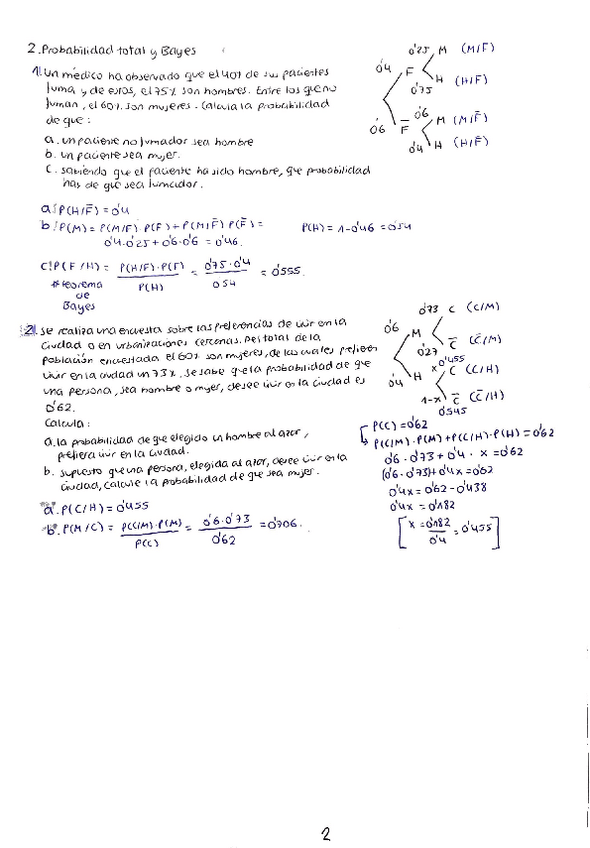 2. Probabilidad total y Bayes
1. Un médico ha observado que el 40% de sus pacientes
fuma y de estos, el 75% son hombres. Entre los que no
fuman, el 60% son mujeres. Calcula la probabilidad
de que:
a. un paciente no fumador sea hombre
b. un paciente sea mujer.
c. sabiendo que el paciente ha sido hombre, que probabilidad
hay de que sea fumador.
0'4 F 0'25 M (M/F)
0'75 H (H/F)
0'6 F̅ 0'6 M (M/F̅)
0'4 H (H/F̅)
a. P(H/F̅) = 0'4
b. P(M) = P(M/F)·P(F) + P(M/F̅)·P(F̅) =
0'4·0'25 + 0'6·0'6 = 0'46.
P(H) = 1-0'46 = 0'54
c. P(F/H) = P(H/F)·P(F) / P(H) = 0'75·0'4 / 0'54 = 0'555.
*teorema
de
Bayes
2. Se realiza una encuesta sobre las preferencias de vivir en la
ciudad o en urbanizaciones cercanas. Del total de la
población encuestada el 60% son mujeres, de las cuales prefieren
vivir en la ciudad un 73%. Se sabe que la probabilidad de que
una persona, sea hombre o mujer, desee vivir en la ciudad es
0'62.
Calcula:
a. la probabilidad de que elegido un hombre al azar,
prefiera vivir en la ciudad.
b. supuesto que una persona, elegida al azar, desee vivir en la
ciudad, calcule la probabilidad de que sea mujer.
0'6 M 0'73 C (C/M)
0'27 C̅ (C̅/M)
0'4 H x 0'455 C (C/H)
1-x C̅ (C̅/H)
0'545
P(C) = 0'62
P(C/M)·P(M) + P(C/H)·P(H) = 0'62
0'6·0'73 + 0'4·x = 0'62
(0'6·0'73) + 0'4x = 0'62
0'4x = 0'62 - 0'438
0'4x = 0'182
[x = 0'182 / 0'4 = 0'455]
a. P(C/H) = 0'455
b. P(M/C) = P(C/M)·P(M) / P(C) = 0'6·0'73 / 0'62 = 0'706.
2